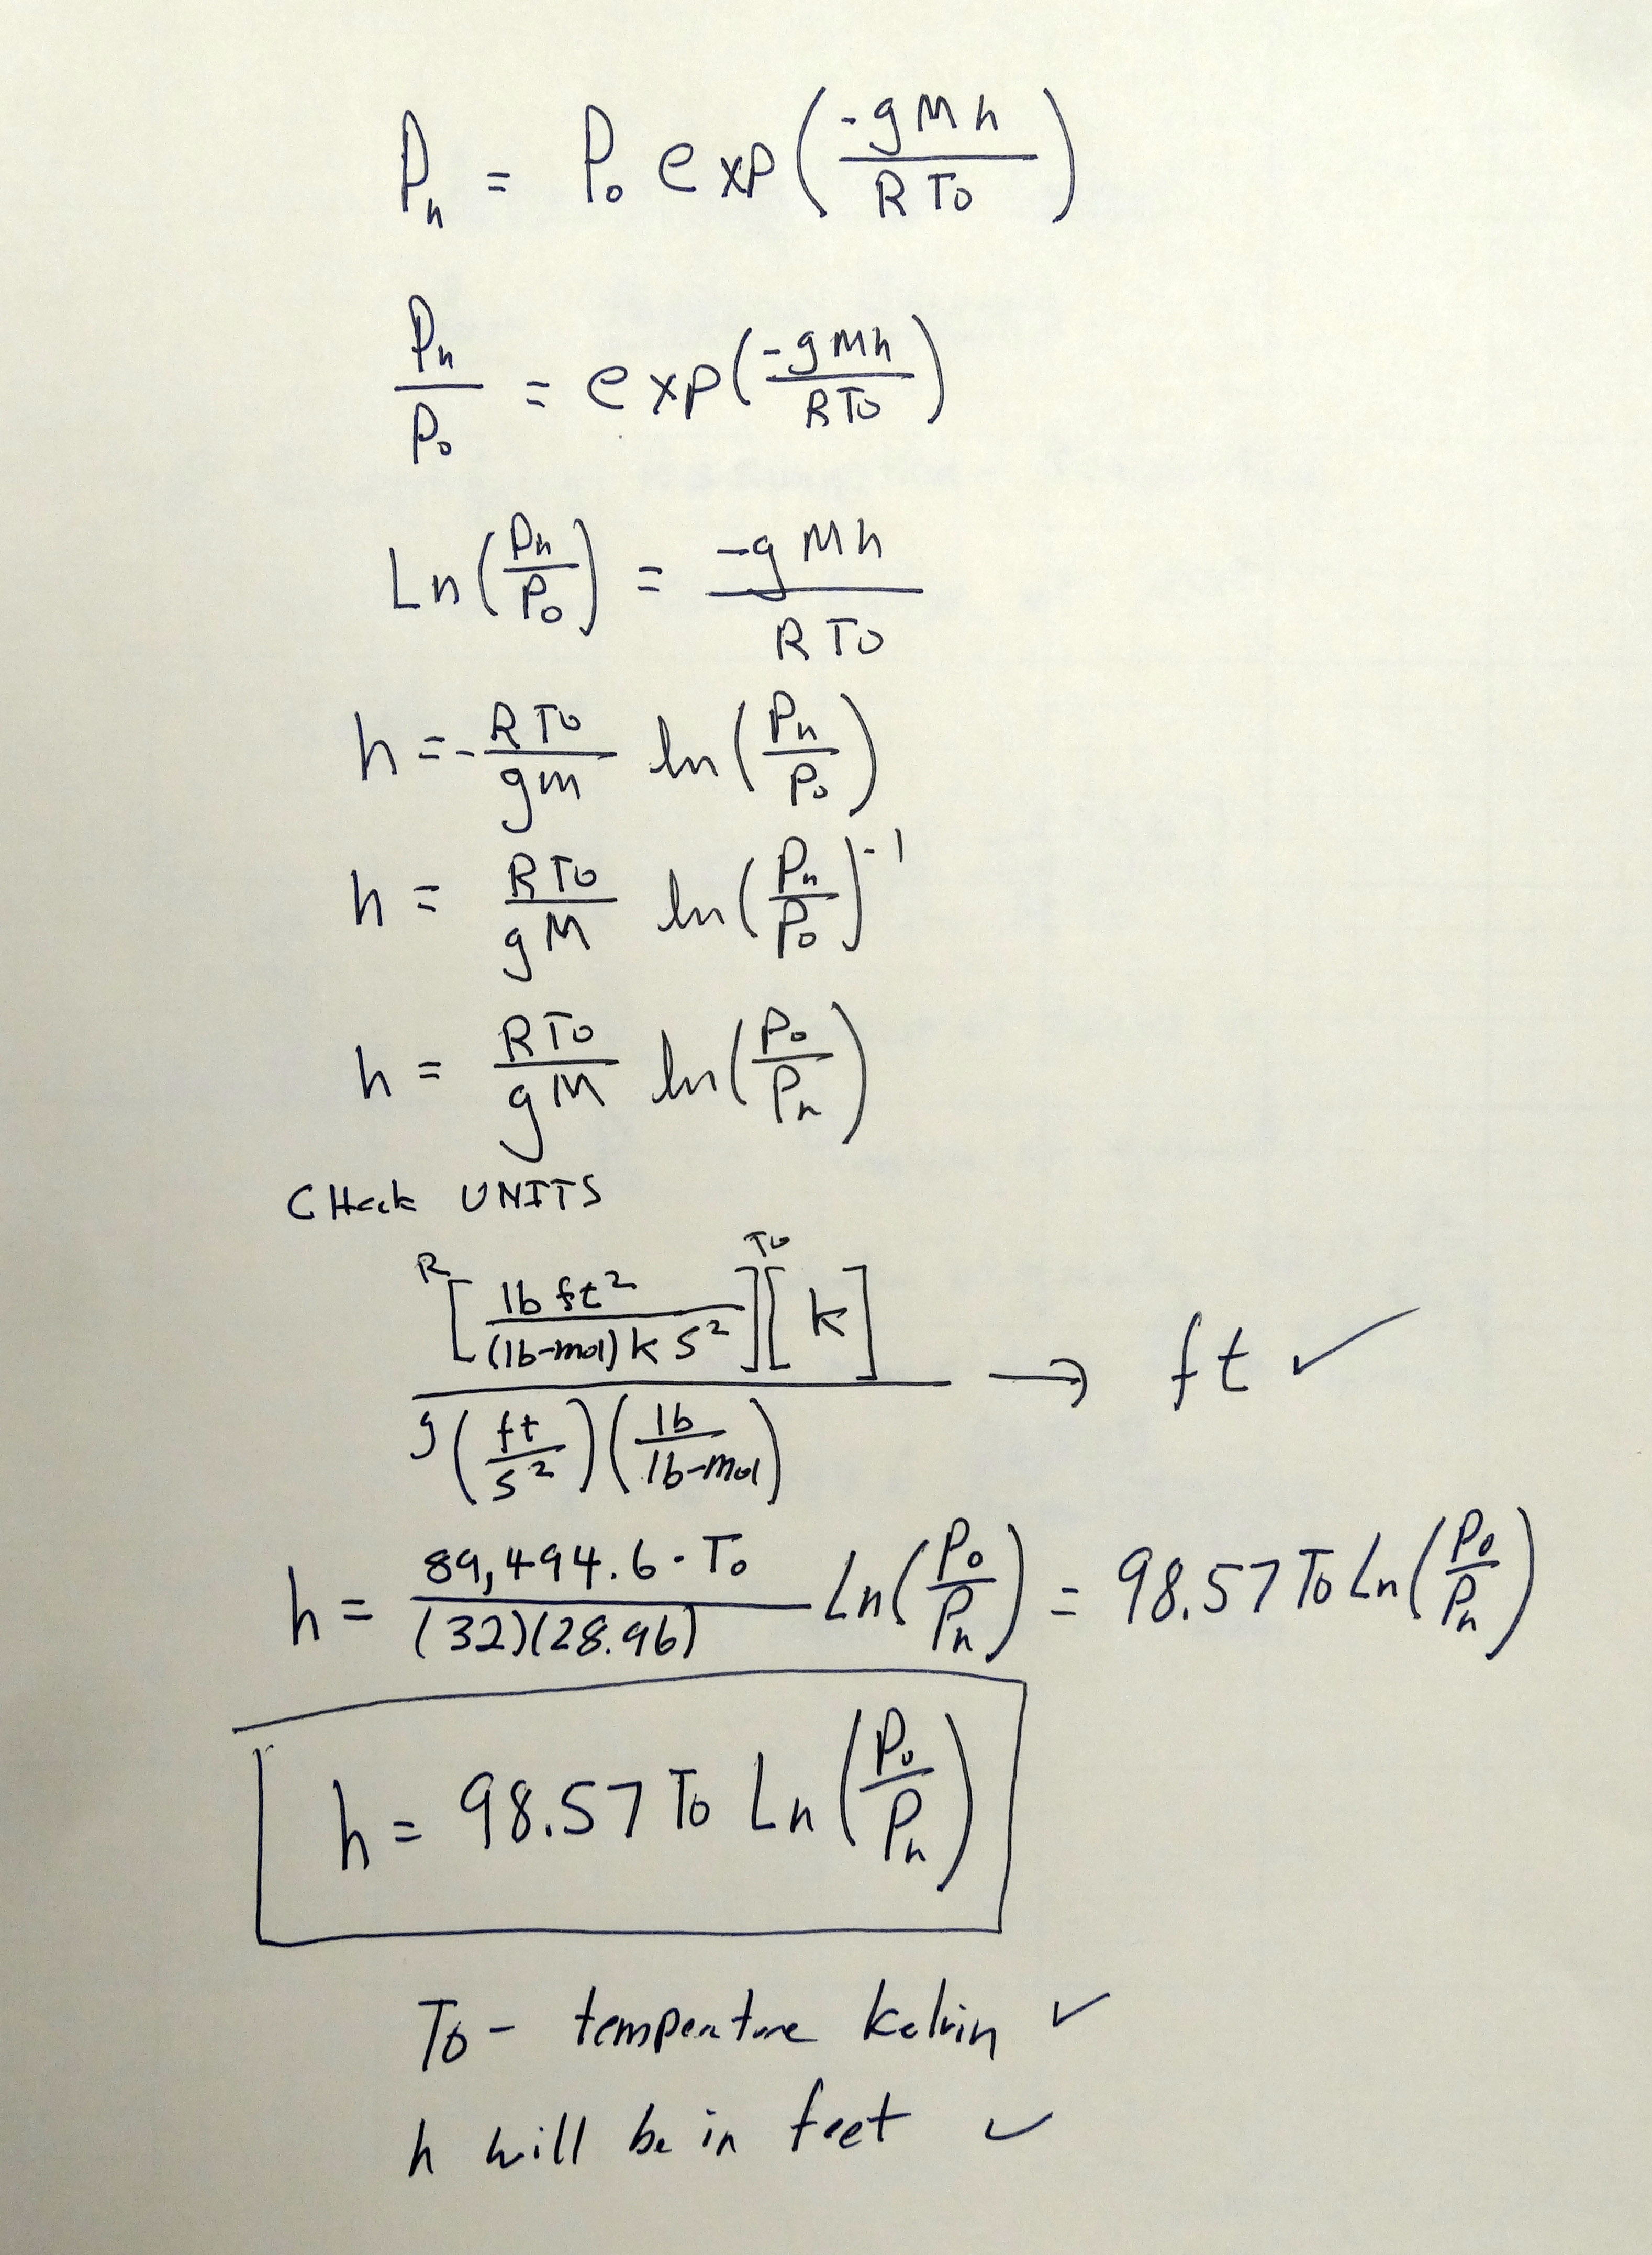 Pₕ = P₀ exp(-gMh / RT₀)
Pₕ / P₀ = exp(-gMh / RT₀)
Ln(Pₕ / P₀) = -gMh / RT₀
h = - RT₀ / gm ln(Pₕ / P₀)
h = RT₀ / gM ln(Pₕ / P₀)⁻¹
h = RT₀ / gM ln(P₀ / Pₕ)
CHeck UNITS
R [lb ft² / (lb-mol) k s²] T₀ [k] / g (ft / s²) (lb / lb-mol) → ft ✓
h = 89,494.6 · T₀ / (32)(28.96) Ln(P₀ / Pₕ) = 98.57 T₀ Ln(P₀ / Pₕ)
h = 98.57 T₀ Ln(P₀ / Pₕ)
T₀ - temperature kelvin ✓
h will be in feet ✓